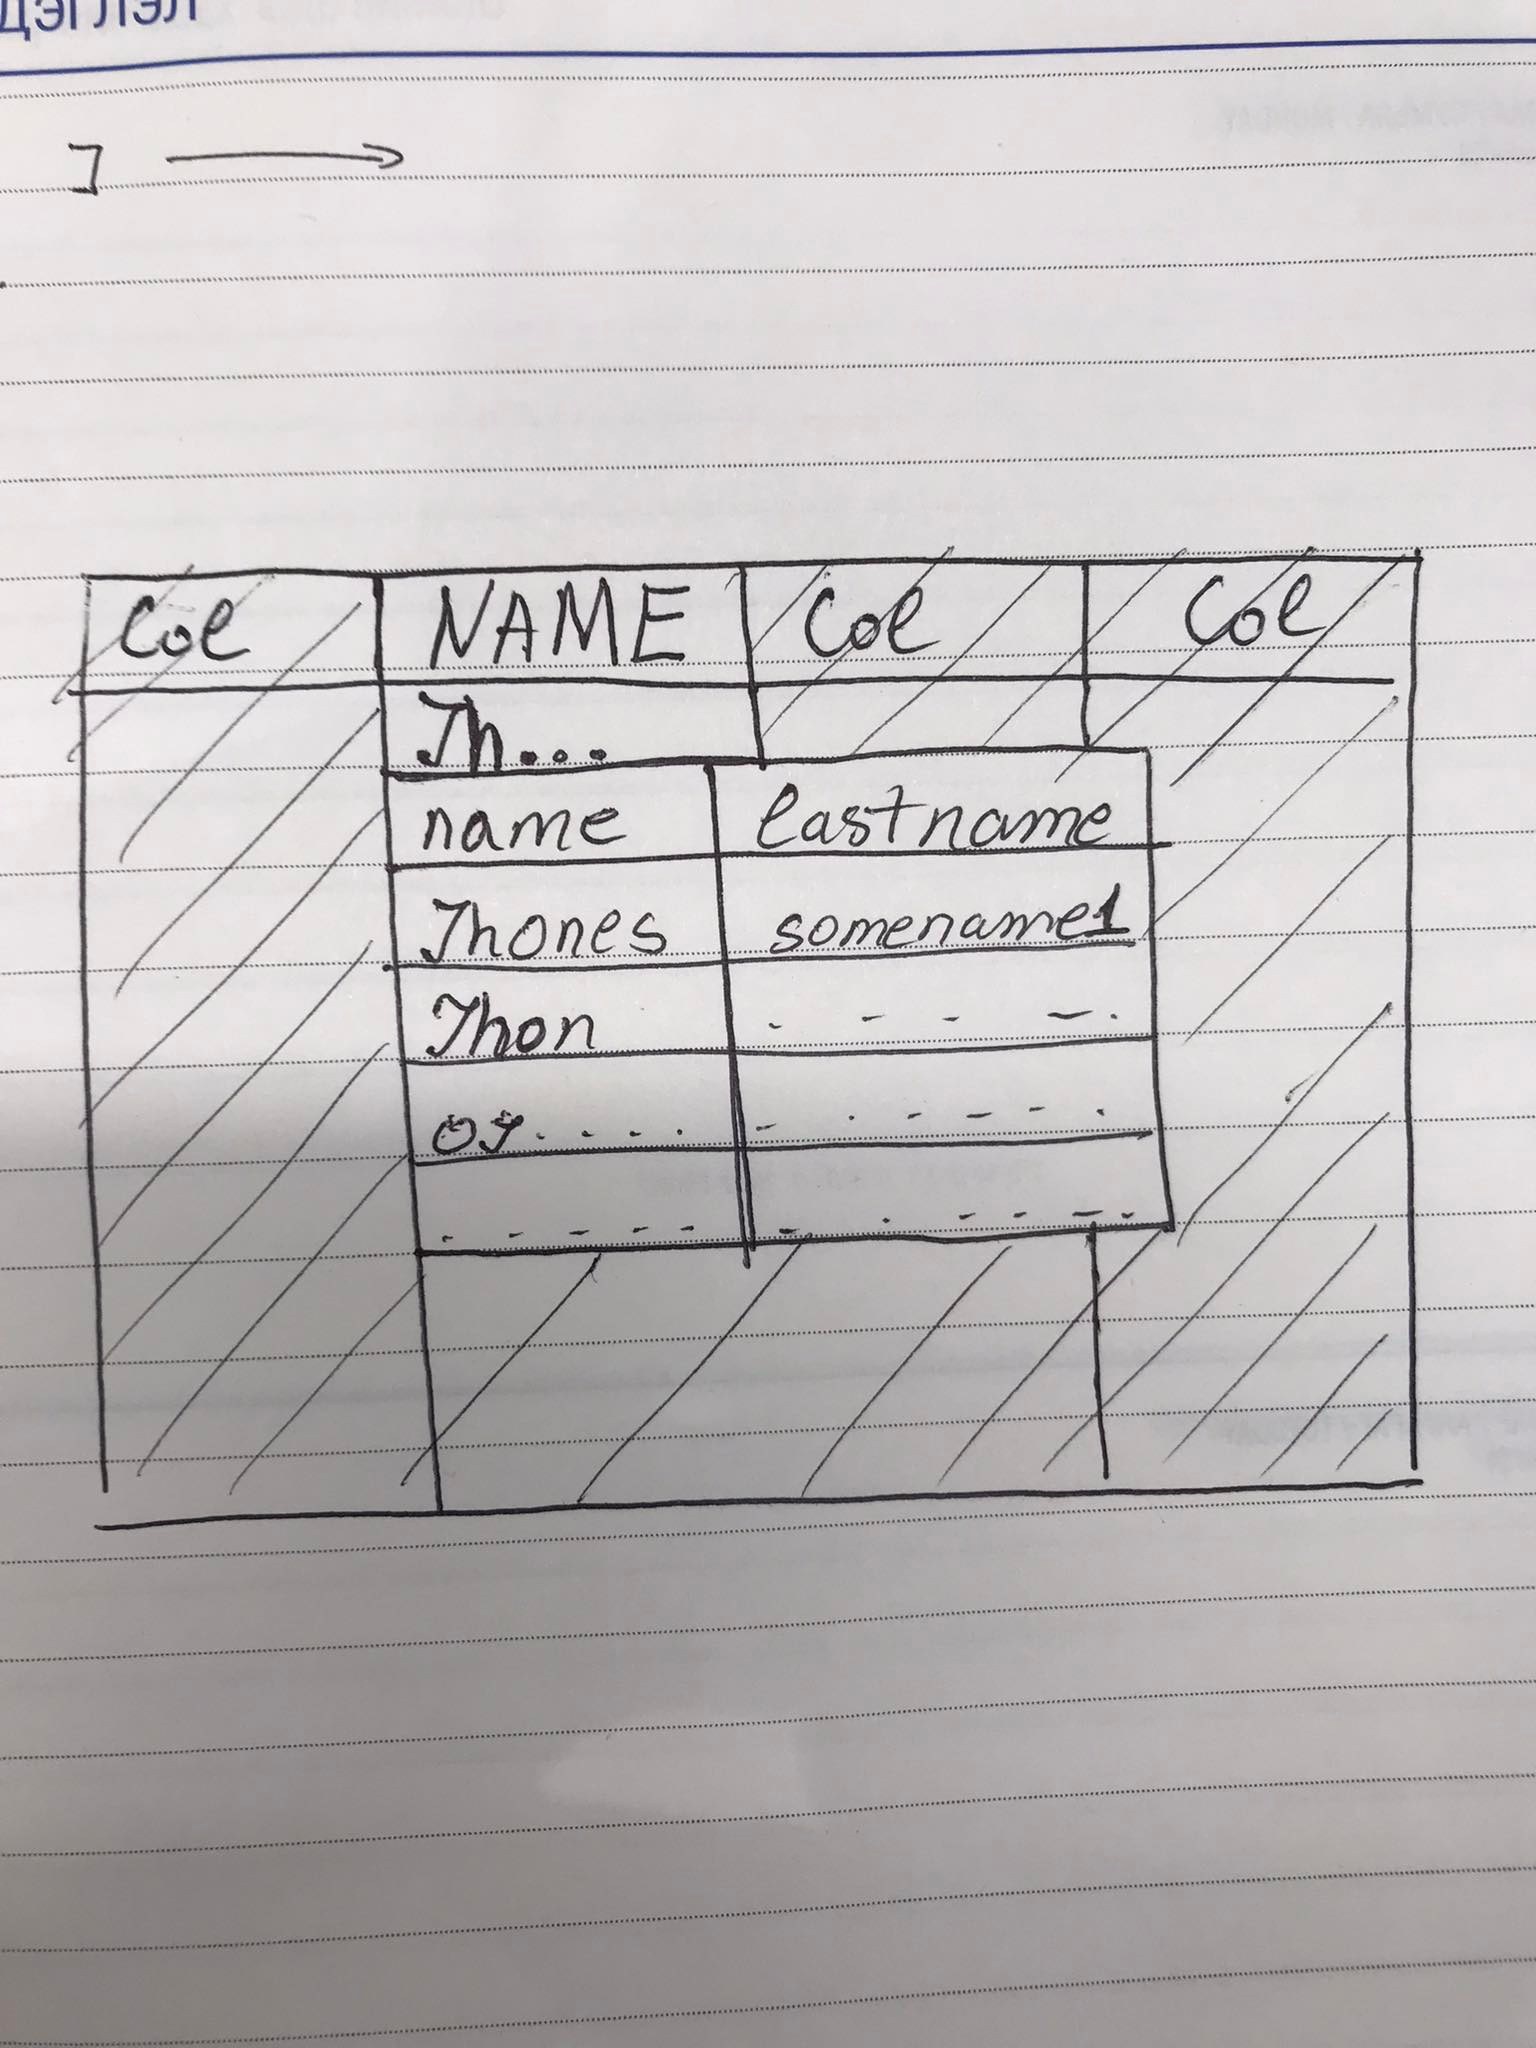 ДЭГЛЭЛ
Col NAME Col Col
Jh...
name lastname
Jhones somename1
Jhon